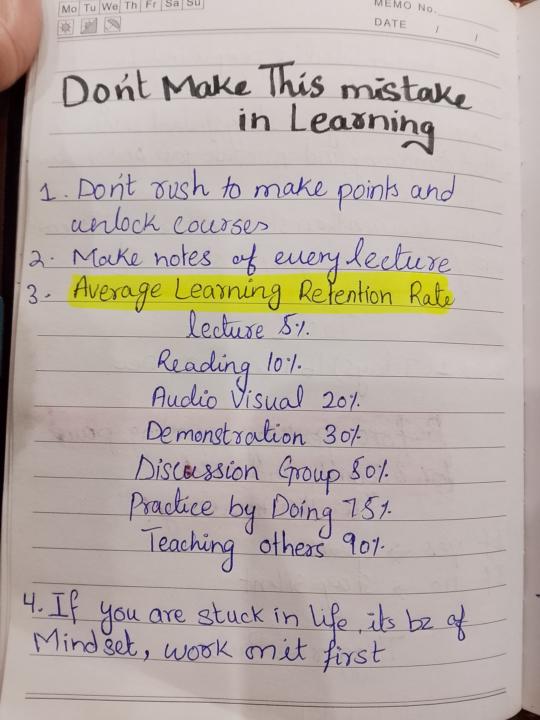 Mo Tu We Th Fr Sa Su
MEMO No.
DATE / /
Don't Make This mistake
in Learning
1. Don't rush to make points and
unlock courses
2. Make notes of every lecture
3. Average Learning Retention Rate
lecture 5%
Reading 10%
Audio Visual 20%
Demonstration 30%
Discussion Group 50%
Practice by Doing 75%
Teaching others 90%
4. If you are stuck in life, its bz of
Mindset, work on it first